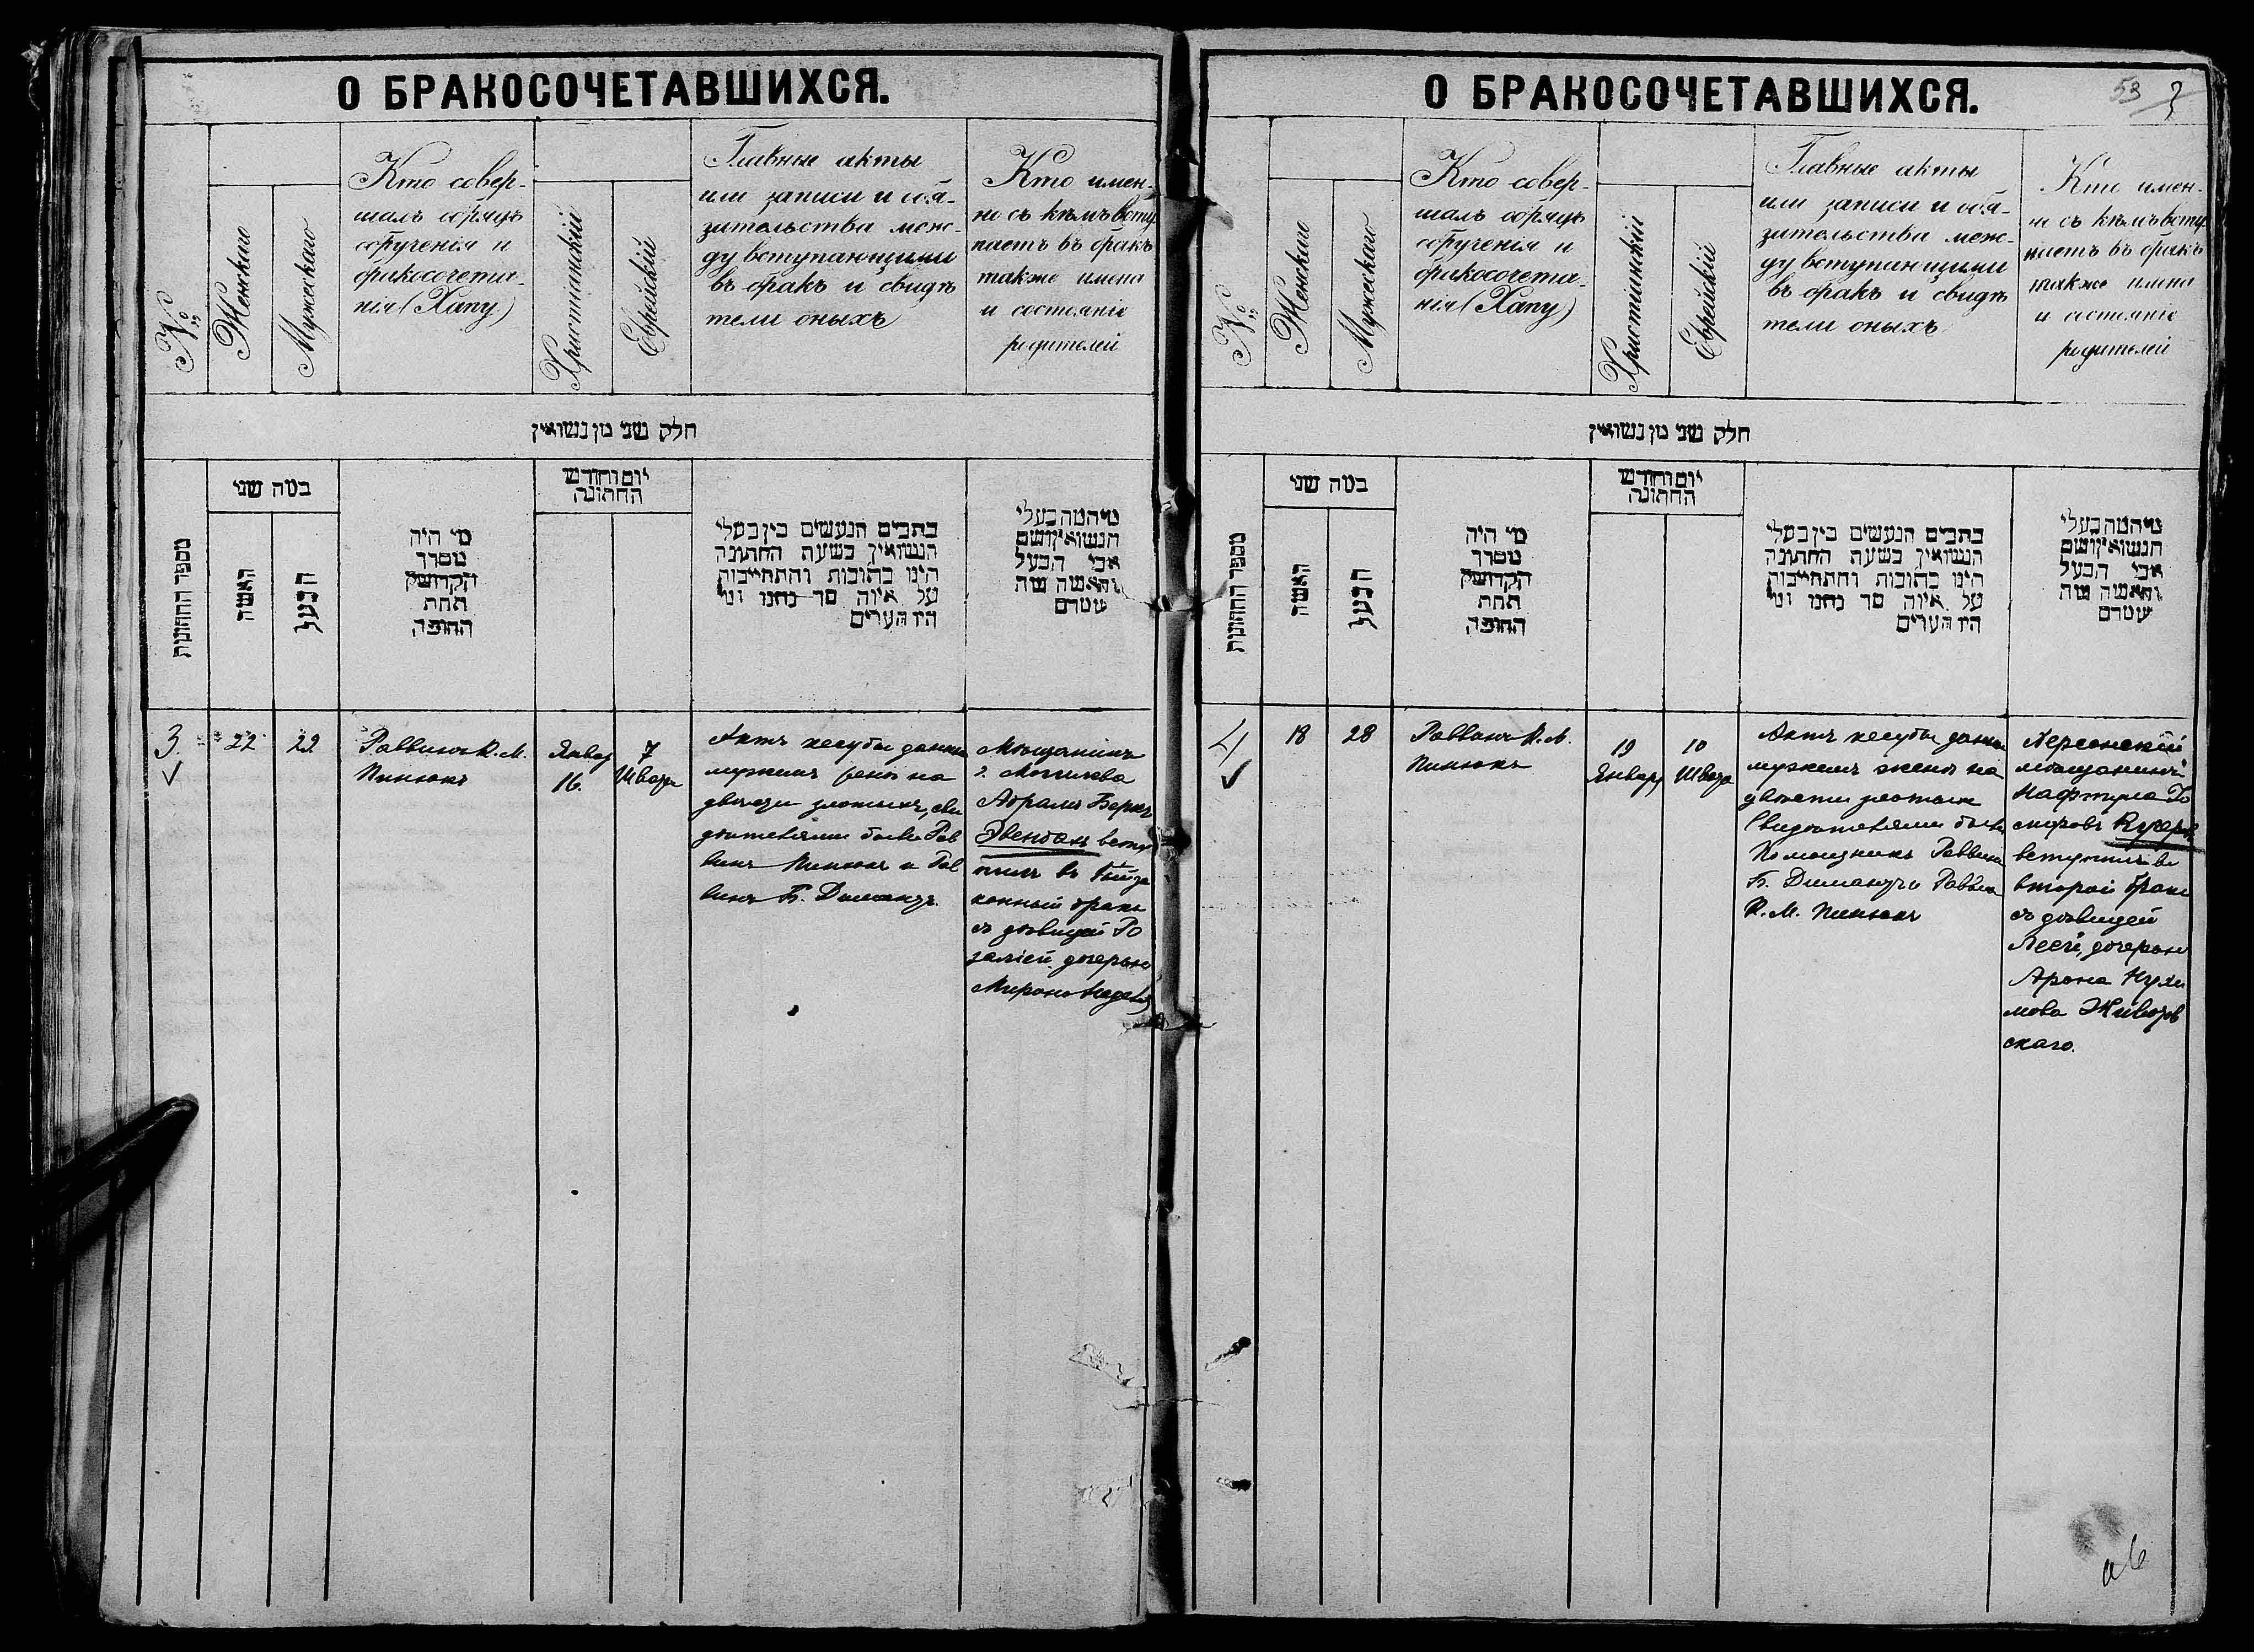 О БРАКОСОЧЕТАВШИХСЯ.
№
Женскаго
Мужескаго
Кто совер-
шалъ обрядъ
обрученія и
бракосочета-
нія (Хапу)
Христіанскій
Еврейскій
Главные акты
или записи и обя-
зательства меж-
ду вступающими
въ бракъ и свидѣ
тели оныхъ
Кто имен-
но съ кѣмъ всту
паетъ въ бракъ
также имена
и состояніе
родителей
חלק שני מן נשואין
מספר החתונות
כמה שני
האשה
הבעל
מי היה
מסדר
הקדושין
תחת
החופה
יום וחודש
החתונה
כתבים הנעשים בין בעלי
הנשואין בשעת החתונה
היינו כתובות והתחייבות
על איזה סך נתנו ומי
היו העדים
מי המה בעלי
הנשואין ושם
אבי הבעל
והאשה מה
שמם
3
22
22
Раввинъ К. М.
Пинюкъ
Январ
16.
7
Швата
Актъ кесубы данъ
мужемъ женѣ на
двѣсти злотыхъ, сви
дѣтелями были Рав
винъ Пинюкъ и Рав
винъ Б. Димандъ.
Мѣщанинъ
г. Могилева
Абрамъ Берка
вступ
пилъ въ
конный бракъ
съ дѣвицей Ро
заліей, дочерью
Мирона
О БРАКОСОЧЕТАВШИХСЯ.
53
№
Женскаго
Мужескаго
Кто совер-
шалъ обрядъ
обрученія и
бракосочета-
нія (Хапу)
Христіанскій
Еврейскій
Главные акты
или записи и обя-
зательства меж-
ду вступающими
въ бракъ и свидѣ
тели оныхъ
Кто имен-
но съ кѣмъ всту
паетъ въ бракъ
также имена
и состояніе
родителей
חלק שני מן נשואין
מספר החתונות
כמה שני
האשה
הבעל
מי היה
מסדר
הקדושין
תחת
החופה
יום וחודש
החתונה
כתבים הנעשים בין בעלי
הנשואין בשעת החתונה
היינו כתובות והתחייבות
על איזה סך נתנו ומי
היו העדים
מי המה בעלי
הנשואין ושם
אבי הבעל
והאשה מה
שמם
4
18
28
Раввинъ К. М.
Пинюкъ
19
Января
10
Швата
Актъ кесубы данъ
мужемъ женѣ на
двѣсти злотыхъ
Свидѣтелями были
Помощникъ Раввина
Б. Димандъ и Раввинъ
К. М. Пинюкъ
Херсонскій
мѣщанинъ
Нафтула
вступилъ во
второй бракъ
съ дѣвицей
Леей, дочерью
Арона Нухи
мова
скаго.